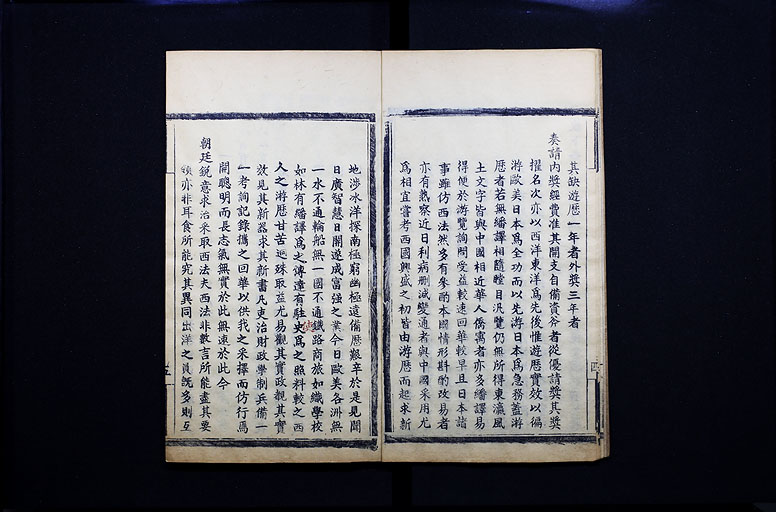 其缺遊歷一年者外獎三年者
奏請內獎經費准其開支自備資斧者從優請獎其獎
擢名次亦以西洋東洋為先後惟遊歷實效以徧
游歐美日本為全功而以先游日本為急務蓋游
歷者若無繙譯相隨瞠目汎覽仍無所得東瀛風
土文字皆與中國相近華人僑寓者亦多繙譯易
得便於游覽詢問受益較速回華較早且日本諸
事雖仿西法然多有參酌本國情形斟酌改易者
亦有熟察近日利病刪減變通者與中國采用尤
為相宜嘗考西國興盛之初皆由游歷而起求新
地涉冰洋探南極窮幽極遠備歷艱辛於是見聞
日廣智慧日開遂成富强之業今日歐美各洲無
一水不通輪船無一國不通鐵路商旅如織學校
如林有繙譯為之傳達有駐使為之照料較之西
人之游歷甘苦迥殊取益尤易觀其實政觀其實
效見其新器求其新書凡吏治財政學制兵備一
一考詢記錄攜之回華以供我之采擇而仿行焉
開聰明而長志氣無實於此無速於此今
朝廷銳意求治采取西法夫西法非數言所能盡其要
領亦非耳食所能究其異同出洋之員既多則互
四
五